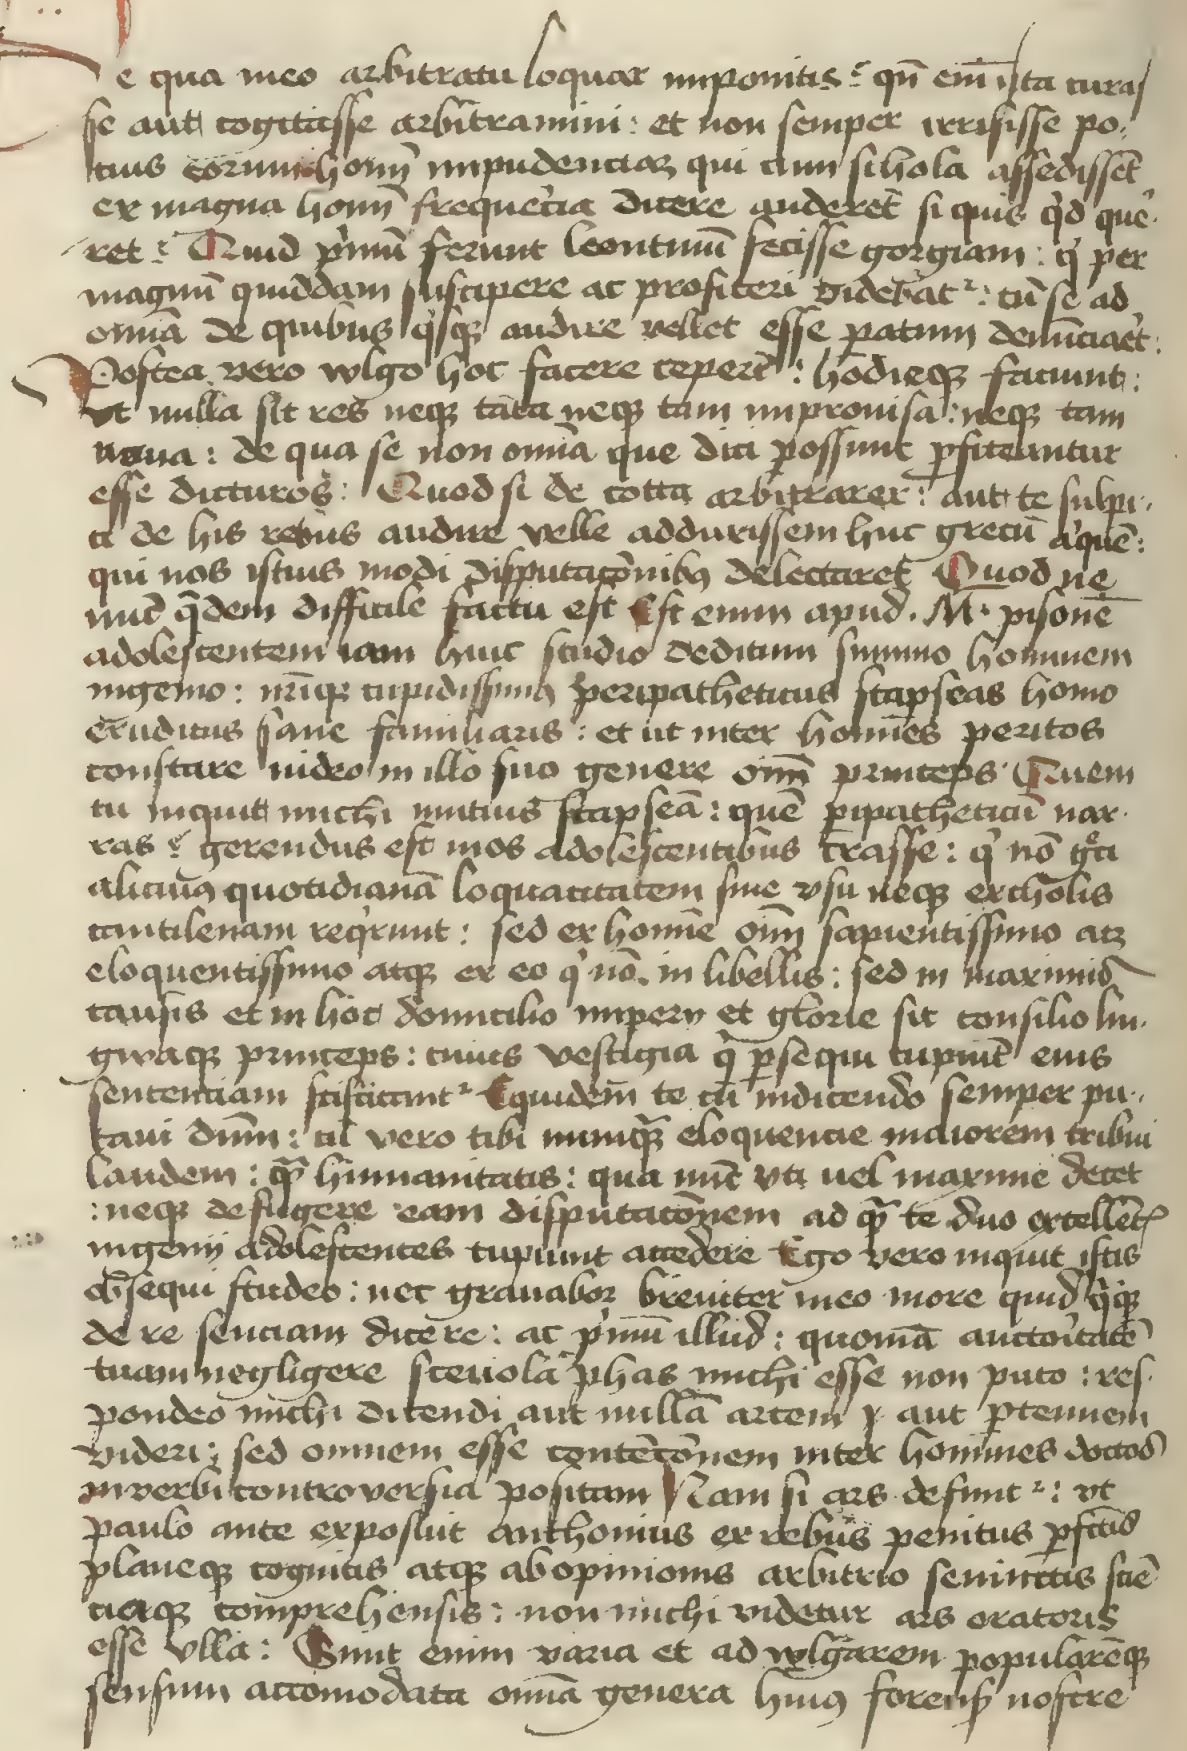 e qua meo arbitratu loquar imponitis: qn̄ em̄ ista cura
se aut cogitasse arbitramini: et non semper irrisisse po-
tius eorum hoīm impudenciam qui cum sihola assedissēt
ex magna hoīm frequēcia dicere auderēt si quis qd que-
ret: Quid pmū ferunt leontinū fecisse gorgiam: q per
magnū quiddam suscipere ac profiteri videbat²: cū se ad
omīa de quibus qsq audire vellet esse patum denūciaēt:
Postea vero wlgo hoc facere ceperēt: hodieq faciunt:
vt nulla sit res neq tāta neq tam improuisa: neq tam
noua: de qua se non omīa que dici possunt pfiteantur
esse dicturos: Quod si de cotta arbitrarer: aut te sulpi-
ci de his rebus audire velle adduxissem huc grecū aquē:
qui nos istius modi disputacōnibus delectaret Quod ne
nūc qdem difficile factu est Est enim apud .M. pisonē
adolescentem iam huic studio deditum summo hominem
ingenio: nrīq cupidissimus peripatheticus stapseas homo
eruditus sane familiaris: et ut inter homīes peritos
constare uideo in illo suo genere oīm princeps Quem
tu inquit michi mutius stapseā: quē pipatheticū nar-
ras: gerendus est mos adolescentibus crasse: q nō gci
alicuius quotidianā loquacitatem sine vsu neq excholis
cantilenam reqrunt: sed ex homīe oīm sapientissimo atq
eloquentissimo atq ex eo q nō in libellis: sed in maximis
causis et in hoc domicilio imperij et glorie sit consilio lin-
guaq princeps: cuius vestigia q psequi cupiūt eius
sentenciam sciscitant² Equidem te cū indicendo semper pu-
taui dūm: tū vero tibi nunq̄ eloquencie maiorem tribui
laudem: q̄ humanitatis: qua nūc vti uel maxime decet
: neq defugere eam disputacōnem ad q̄ te duo excellētes
ingenij adolescentes cupiunt accedere Ego vero inquit istis
obsequi studeo: nec grauabor breuiter meo more quid qq
de re senciam dicere: ac pmū illud: quoniā auctoritatē
tuam negligere sceuola phas michi esse non puto: res-
pondeo michi dicendi aut nullā artem aut ptenuem
videri: sed omnem esse contēcōnem inter homines doctos
in verbi controversia positam Nam si ars definit²: vt
paulo ante exposuit anthonius ex rebus penitus pspectis
planeq cognitis atq ab opinionis arbitrio seiunctis sciē-
ciaq comprehensis: non michi videtur ars oratoris
esse vlla: Sunt enim varia et ad wlgarem popularēq
sensum accomodata omīa genera huius forensis nostre